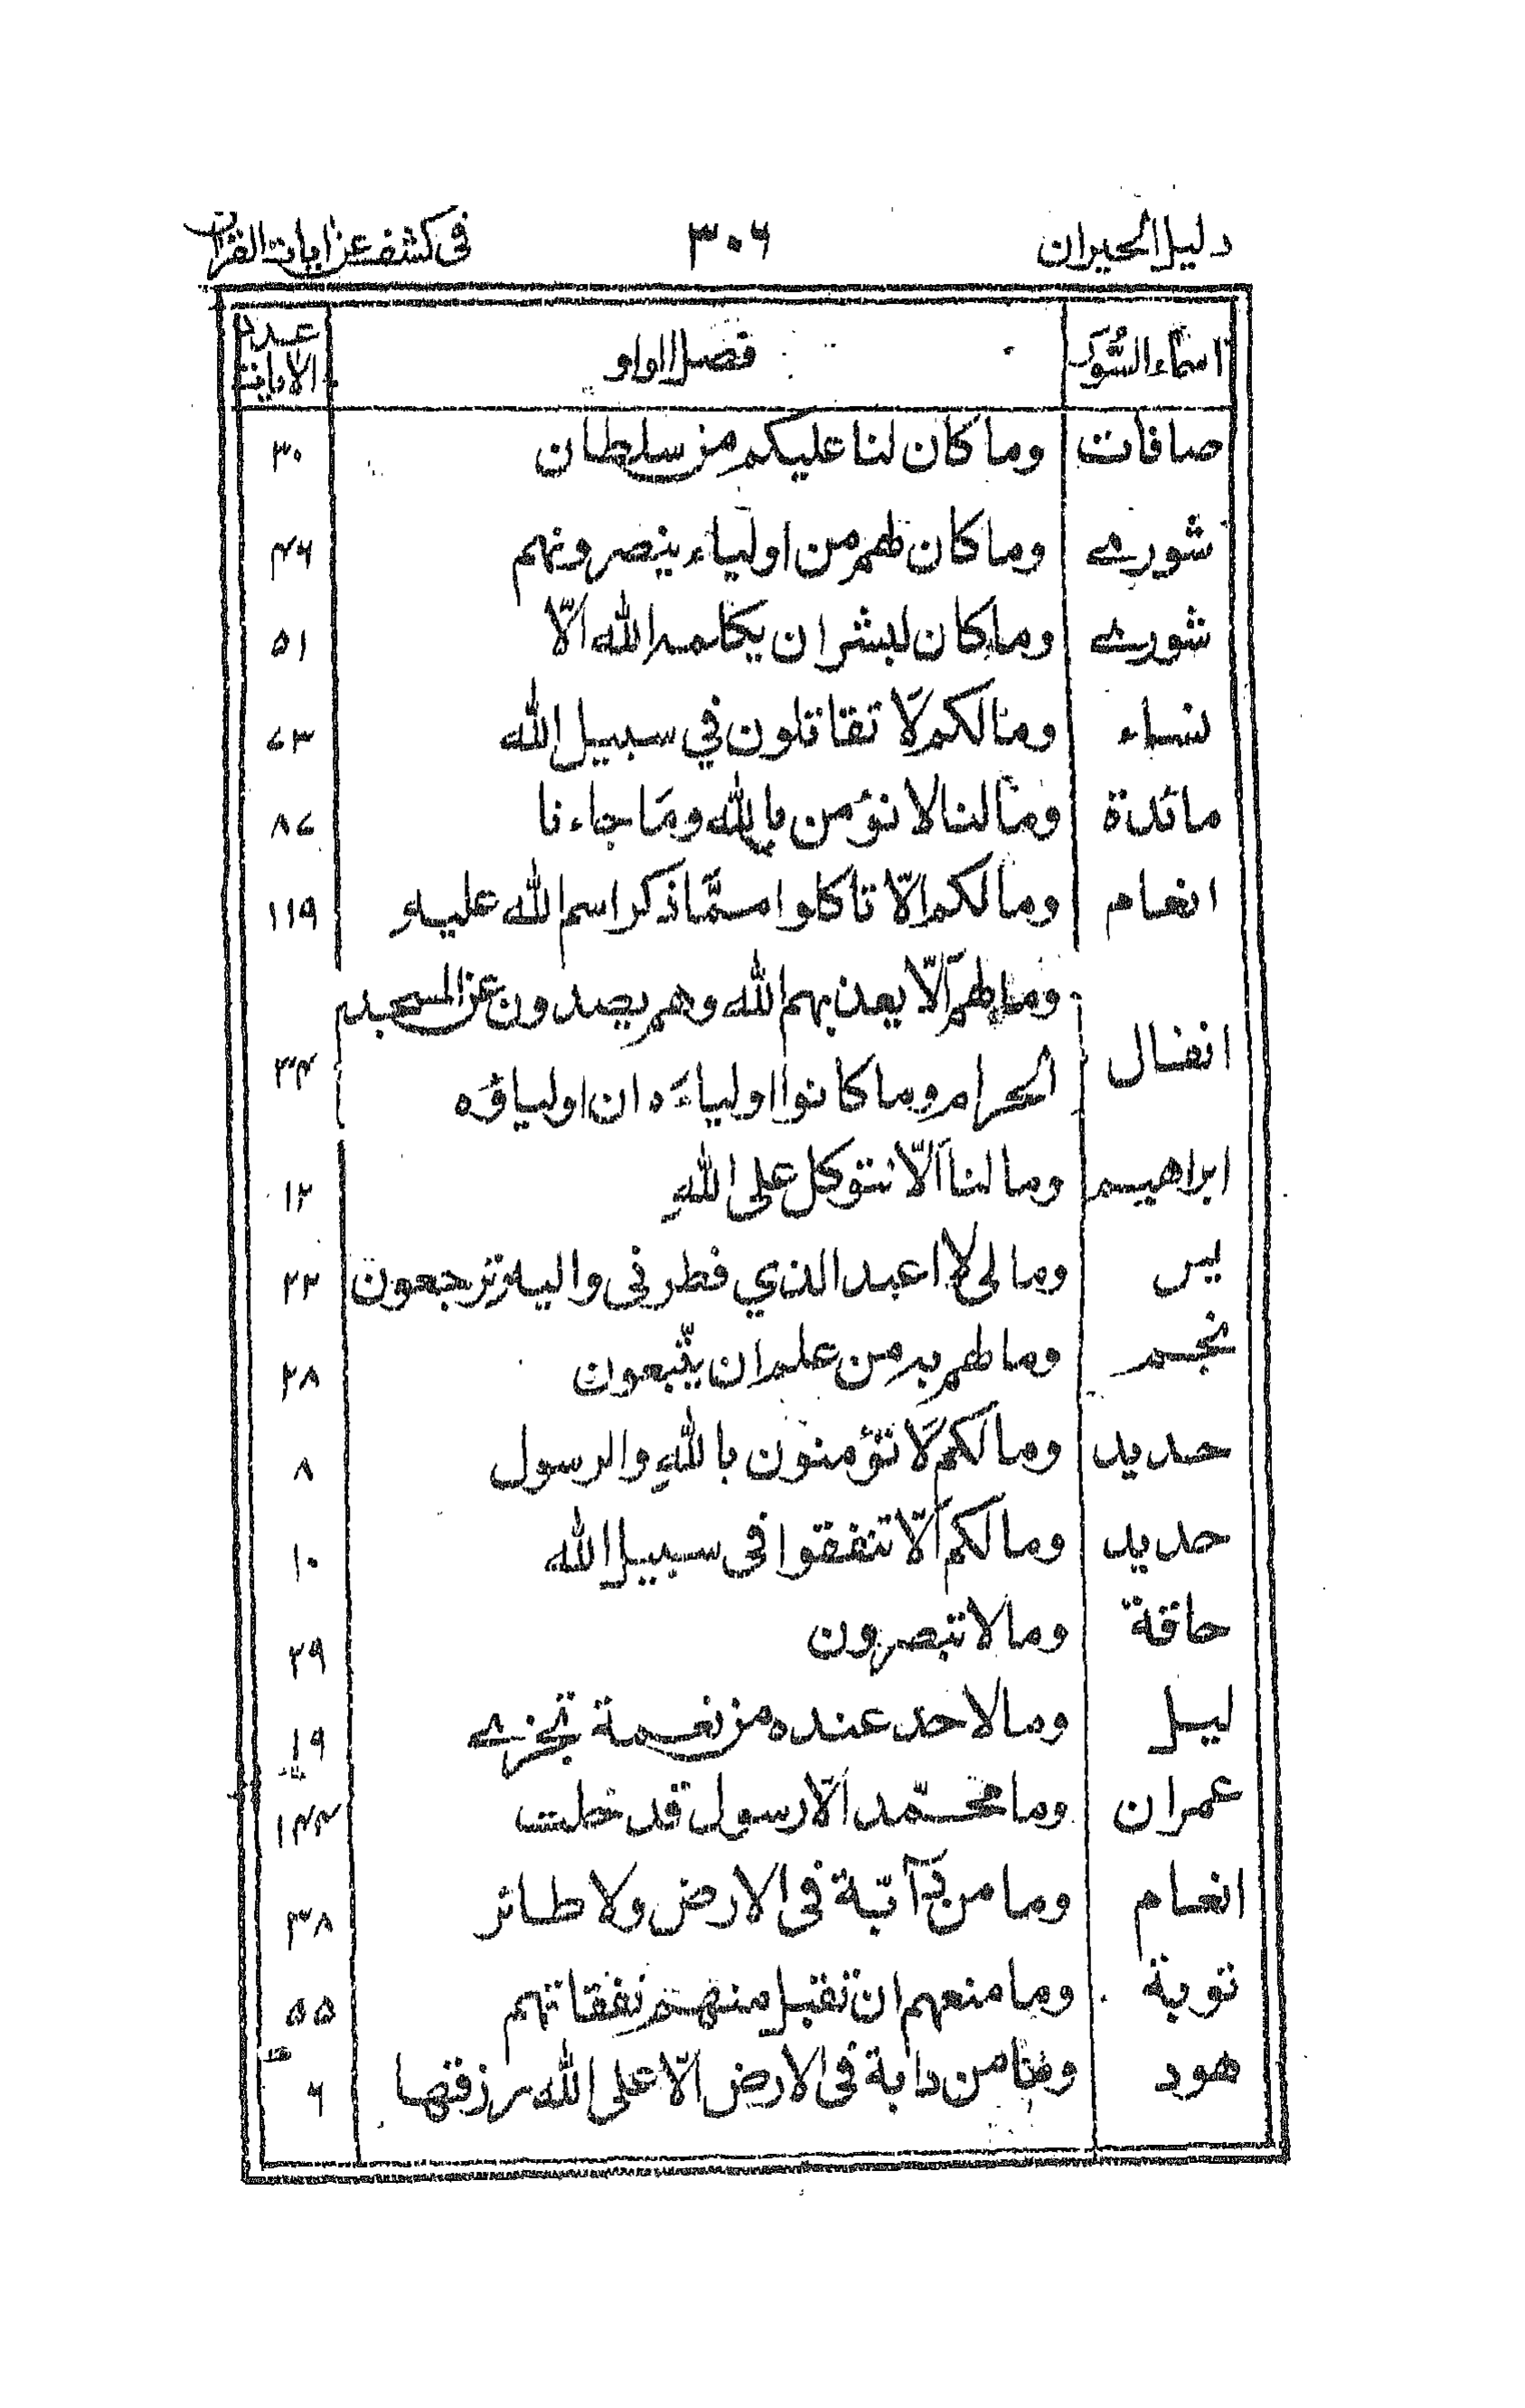 دليل الحيران ٣٠٦ في كشف عن ايات القران
اسماء السُّوَر فصل الواو عدد الايات
صافات وما كان لنا عليكم من سلطان ٣٠
شورے وما كان لهم من اولياء ينصرونهم ٤٦
شورے وما كان لبشر ان يكلمه الله الّا ٥١
نساء وما لكم لا تقاتلون في سبيل الله ٧٣
مائدة وما لنا لا نؤمن بالله وما جاءنا ٨٧
انعام وما لكم الّا تاكلوا ممّا ذكر اسم الله عليه ١١٩
وما لهم الّا يعذبهم الله وهم يصدون عن المسجد
انفال الحرام وما كانوا اولياءَه ان اولياؤه ٣٤
ابراهيم وما لنا الّا نتوكل على اللهِ ١٢
يس وما لى لا اعبد الذي فطرنى واليه ترجعون ٢٢
نجم وما لهم به من علم ان يتّبعون ٢٨
حديد وما لكم لا تؤمنون باللهِ والرسول ٨
حديد وما لكم الّا تنفقوا فى سبيل الله ١٠
حاقة وما لا تبصرون ٣٩
ليل وما لاحد عنده من نعمة تجزے ١٩
عمران وما محمّد الّا رسول قد خلت ١٤٤
انعام وما من دآبّة فى الارض ولا طائر ٣٨
توبة وما منعهم ان تقبل منهم نفقاتهم ٥٥
هود وما من دابة فى الارض الّا على الله رزقها ٦